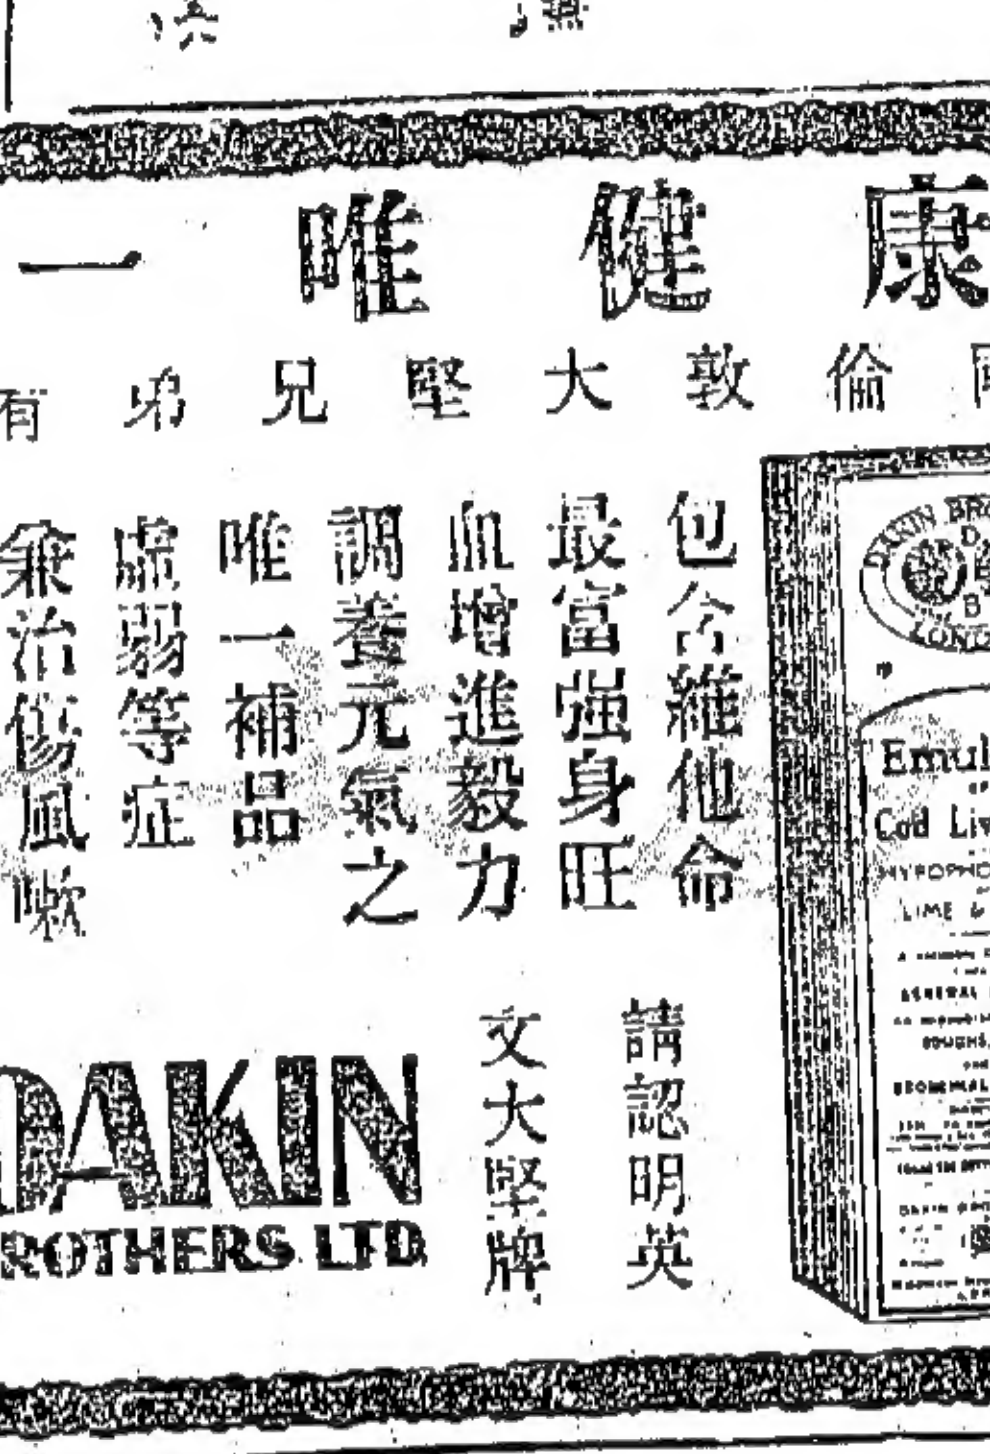 康健唯一
倫敦大堅兄弟有
包含維他命
最富强身旺
血增進毅力
調養元氣之
唯一補品
虛弱等症
兼治傷風嗽
請認明英
文大堅牌
DAKIN
ROTHERS LTD
DAKIN BRO
LONDO
Emul
Cod Liv
HYPOPHO
LIME &
GENERAL
COUGHS,
BRONCHIAL